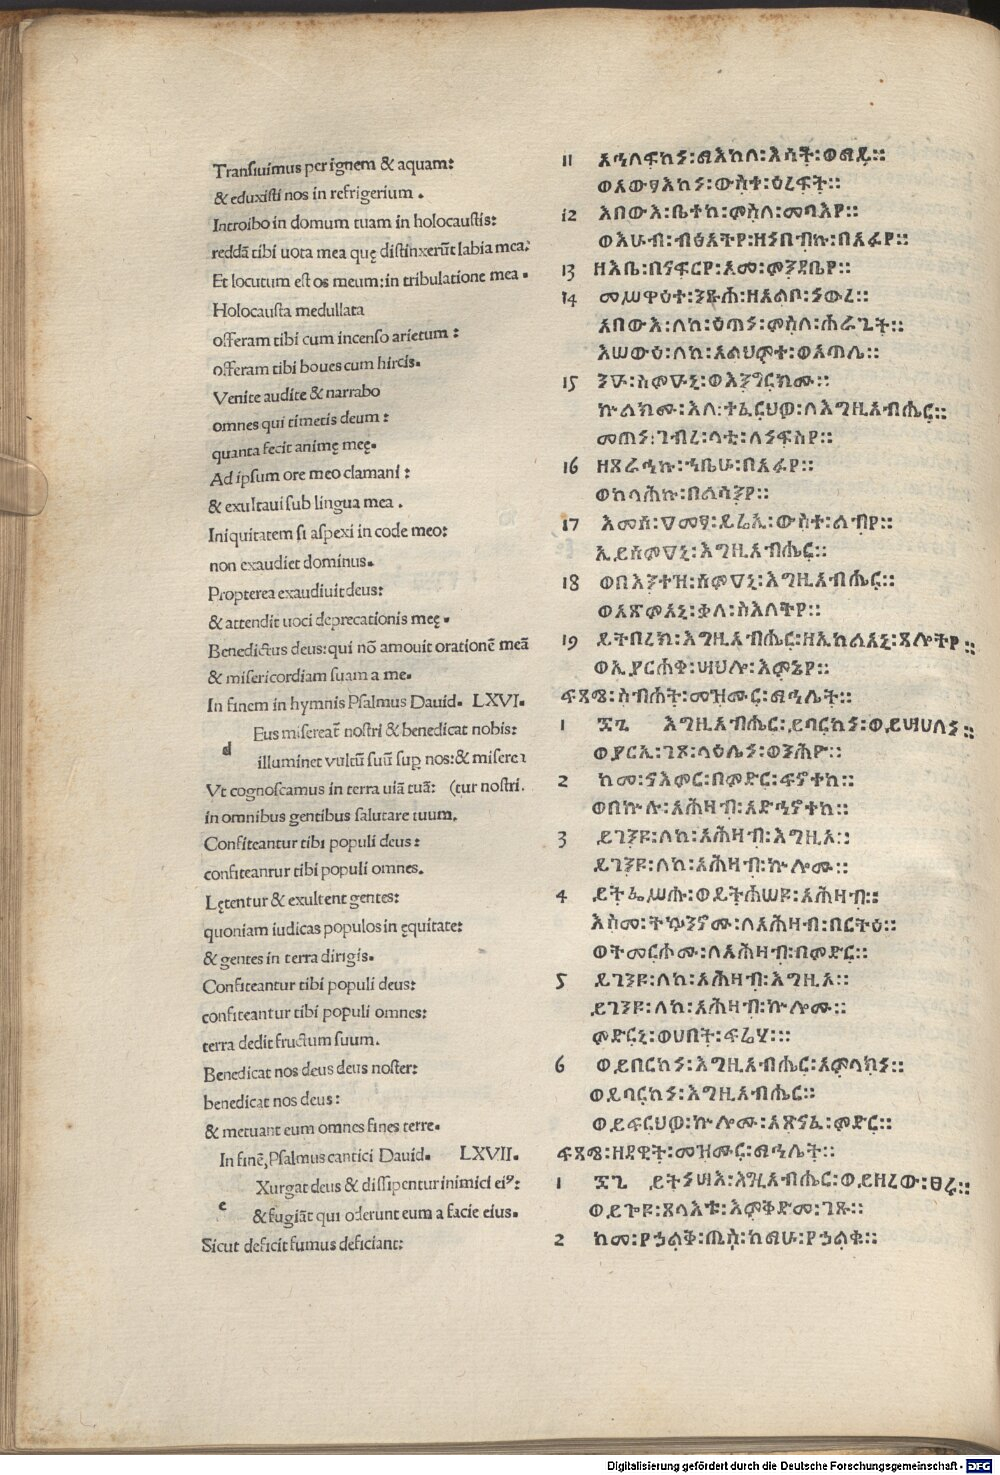 Tranſiuimus per ignem & aquam:
& eduxiſti nos in refrigerium .
Introibo in domum tuam in holocauſtis:
reddā tibi uota mea quę diſtinxerūt labia mea:
Et locutum eſt os meum: in tribulatione mea .
Holocauſta medullata
offeram tibi cum incenſo arietum :
offeram tibi boues cum hircis.
Venite audite & narrabo
omnes qui timetis deum :
quanta fecit animę meę.
Ad ipſum ore meo clamaui :
& exultaui ſub lingua mea .
Iniquitatem ſi aſpexi in code meo:
non exaudiet dominus.
Propterea exaudiuit deus:
& attendit uoci deprecationis meę.
Benedictus deus: qui nō amouit orationē meā
& miſericordiam ſuam a me.
In finem in hymnis Pſalmus Dauid. LXVI.
d Eus miſereat̄ noſtri & benedicat nobis:
illuminet vultū ſuū ſup̱ nos: & miſere
Vt cognoſcamus in terra uiā tuā: (tur noſtri.
in omnibus gentibus ſalutare tuum.
Confiteantur tibi populi deus :
confiteantur tibi populi omnes.
Lętentur & exultent gentes:
quoniam iudicas populos in ęquitate:
& gentes in terra dirigis.
Confiteantur tibi populi deus:
confiteantur tibi populi omnes:
terra dedit fructum ſuum.
Benedicat nos deus deus noſter:
benedicat nos deus :
& metuant eum omnes fines terre.
In finē, Pſalmus cantici Dauid. LXVII.
e Xurgat deus & diſſipentur inimici eiꝰ:
& fugiāt qui oderunt eum a facie eius.
Sicut deficit fumus deficiant:
11 አኀለፍከነ፡ማእከለ፡እሳት፡ወማይ፡፡
ወአውፃእከነ፡ውስተ፡ዕረፍት፡፡
12 እበውእ፡ቤተከ፡ምስለ፡መባእየ፡፡
ወእሁብ፡ብፅአትየ፡ዘነበብኩ፡በአፉየ፡፡
13 ዘእቤ፡በናፍርየ፡አመ፡ምንዳቤየ፡፡
14 መሥዋዕተ፡ንጹሐ፡ዘአልቦ፡ነውረ፡፡
አበውእ፡ለከ፡ዕጣነ፡ምስለ፡ሐራጊት፡፡
እሠውዕ፡ለከ፡አልህምተ፡ወአጣሌ፡፡
15 ንዑ፡ስምዑኒ፡ወእንግርክሙ፡፡
ኵልክሙ፡እለ፡ተፈርህዎ፡ለእግዚአብሔር፡፡
መጠነ፡ገብረ፡ሊተ፡ለነፍስየ፡፡
16 ዘጸራኅኩ፡ኀቤሁ፡በአፉየ፡፡
ወከላሕኩ፡በልሳንየ፡፡
17 እመሰ፡ዐመፃ፡ይሬኢ፡ውስተ፡ልብየ፡፡
ኢይሰምዐኒ፡እግዚአብሔር፡፡
18 ወበእንተዝ፡ሰምዐኒ፡እግዚአብሔር፡፡
ወአጽምአኒ፡ቃለ፡ስእለትየ፡፡
19 ይትባረክ፡እግዚአብሔር፡ዘኢከልአኒ፡ጸሎትየ፡፡
ወኢያርሐቀ፡ሣህሎ፡እምኔየ፡፡
ፍጻሜ፡ስብሐት፡መዝሙር፡ማኅሌት፡፡
1 ፷፮ እግዚአብሔር፡ይባርከነ፡ወይሣህለነ፡፡
ወያርኢ፡ገጸ፡ላዕሌነ፡ወንሕዮ፡፡
2 ከመ፡ናእምር፡በምድር፡ፍኖተከ፡፡
ወበኵሉ፡አሕዛብ፡አድኅኖተከ፡፡
3 ይገንዩ፡ለከ፡አሕዛብ፡እግዚአ፡፡
ይገንዩ፡ለከ፡አሕዛብ፡ኵሎሙ፡፡
4 ይትፌሥሑ፡ወይትሐሠዩ፡አሕዛብ፡፡
እስመ፡ትኴንኖሙ፡ለአሕዛብ፡በርትዕ፡፡
ወትመርሖሙ፡ለአሕዛብ፡በምድር፡፡
5 ይገንዩ፡ለከ፡አሕዛብ፡እግዚአ፡፡
ይገንዩ፡ለከ፡አሕዛብ፡ኵሎሙ፡፡
ምድርኒ፡ወሀበት፡ፍሬሃ፡፡፡
6 ወይበርከነ፡እግዚአብሔር፡አምላክነ፡፡
ወይባርከነ፡እግዚአብሔር፡፡
ወይፍርህዎ፡ኵሎሙ፡አጽናፈ፡ምድር፡፡
ፍጻሜ፡ዘዳዊት፡መዝሙር፡ማኅሌት፡፡
1 ፷፯ ይትነሣእ፡እግዚአብሔር፡ወይዘረው፡ፀሩ፡፡
ወይጐዩ፡ጸላእቱ፡እምቅድመ፡ገጹ፡፡
2 ከመ፡የኀልቅ፡ጢስ፡ከማሁ፡የኀልቁ፡፡
Digitalisierung gefördert durch die Deutsche Forschungsgemeinschaft - DFG